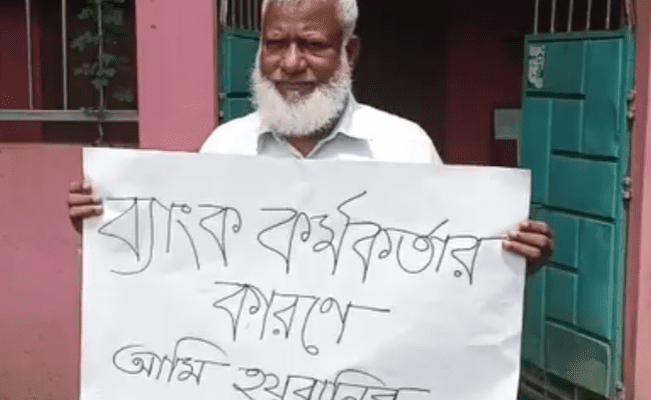 ব্যাংক কর্মকর্তার
কারণে
আমি হয়রানির